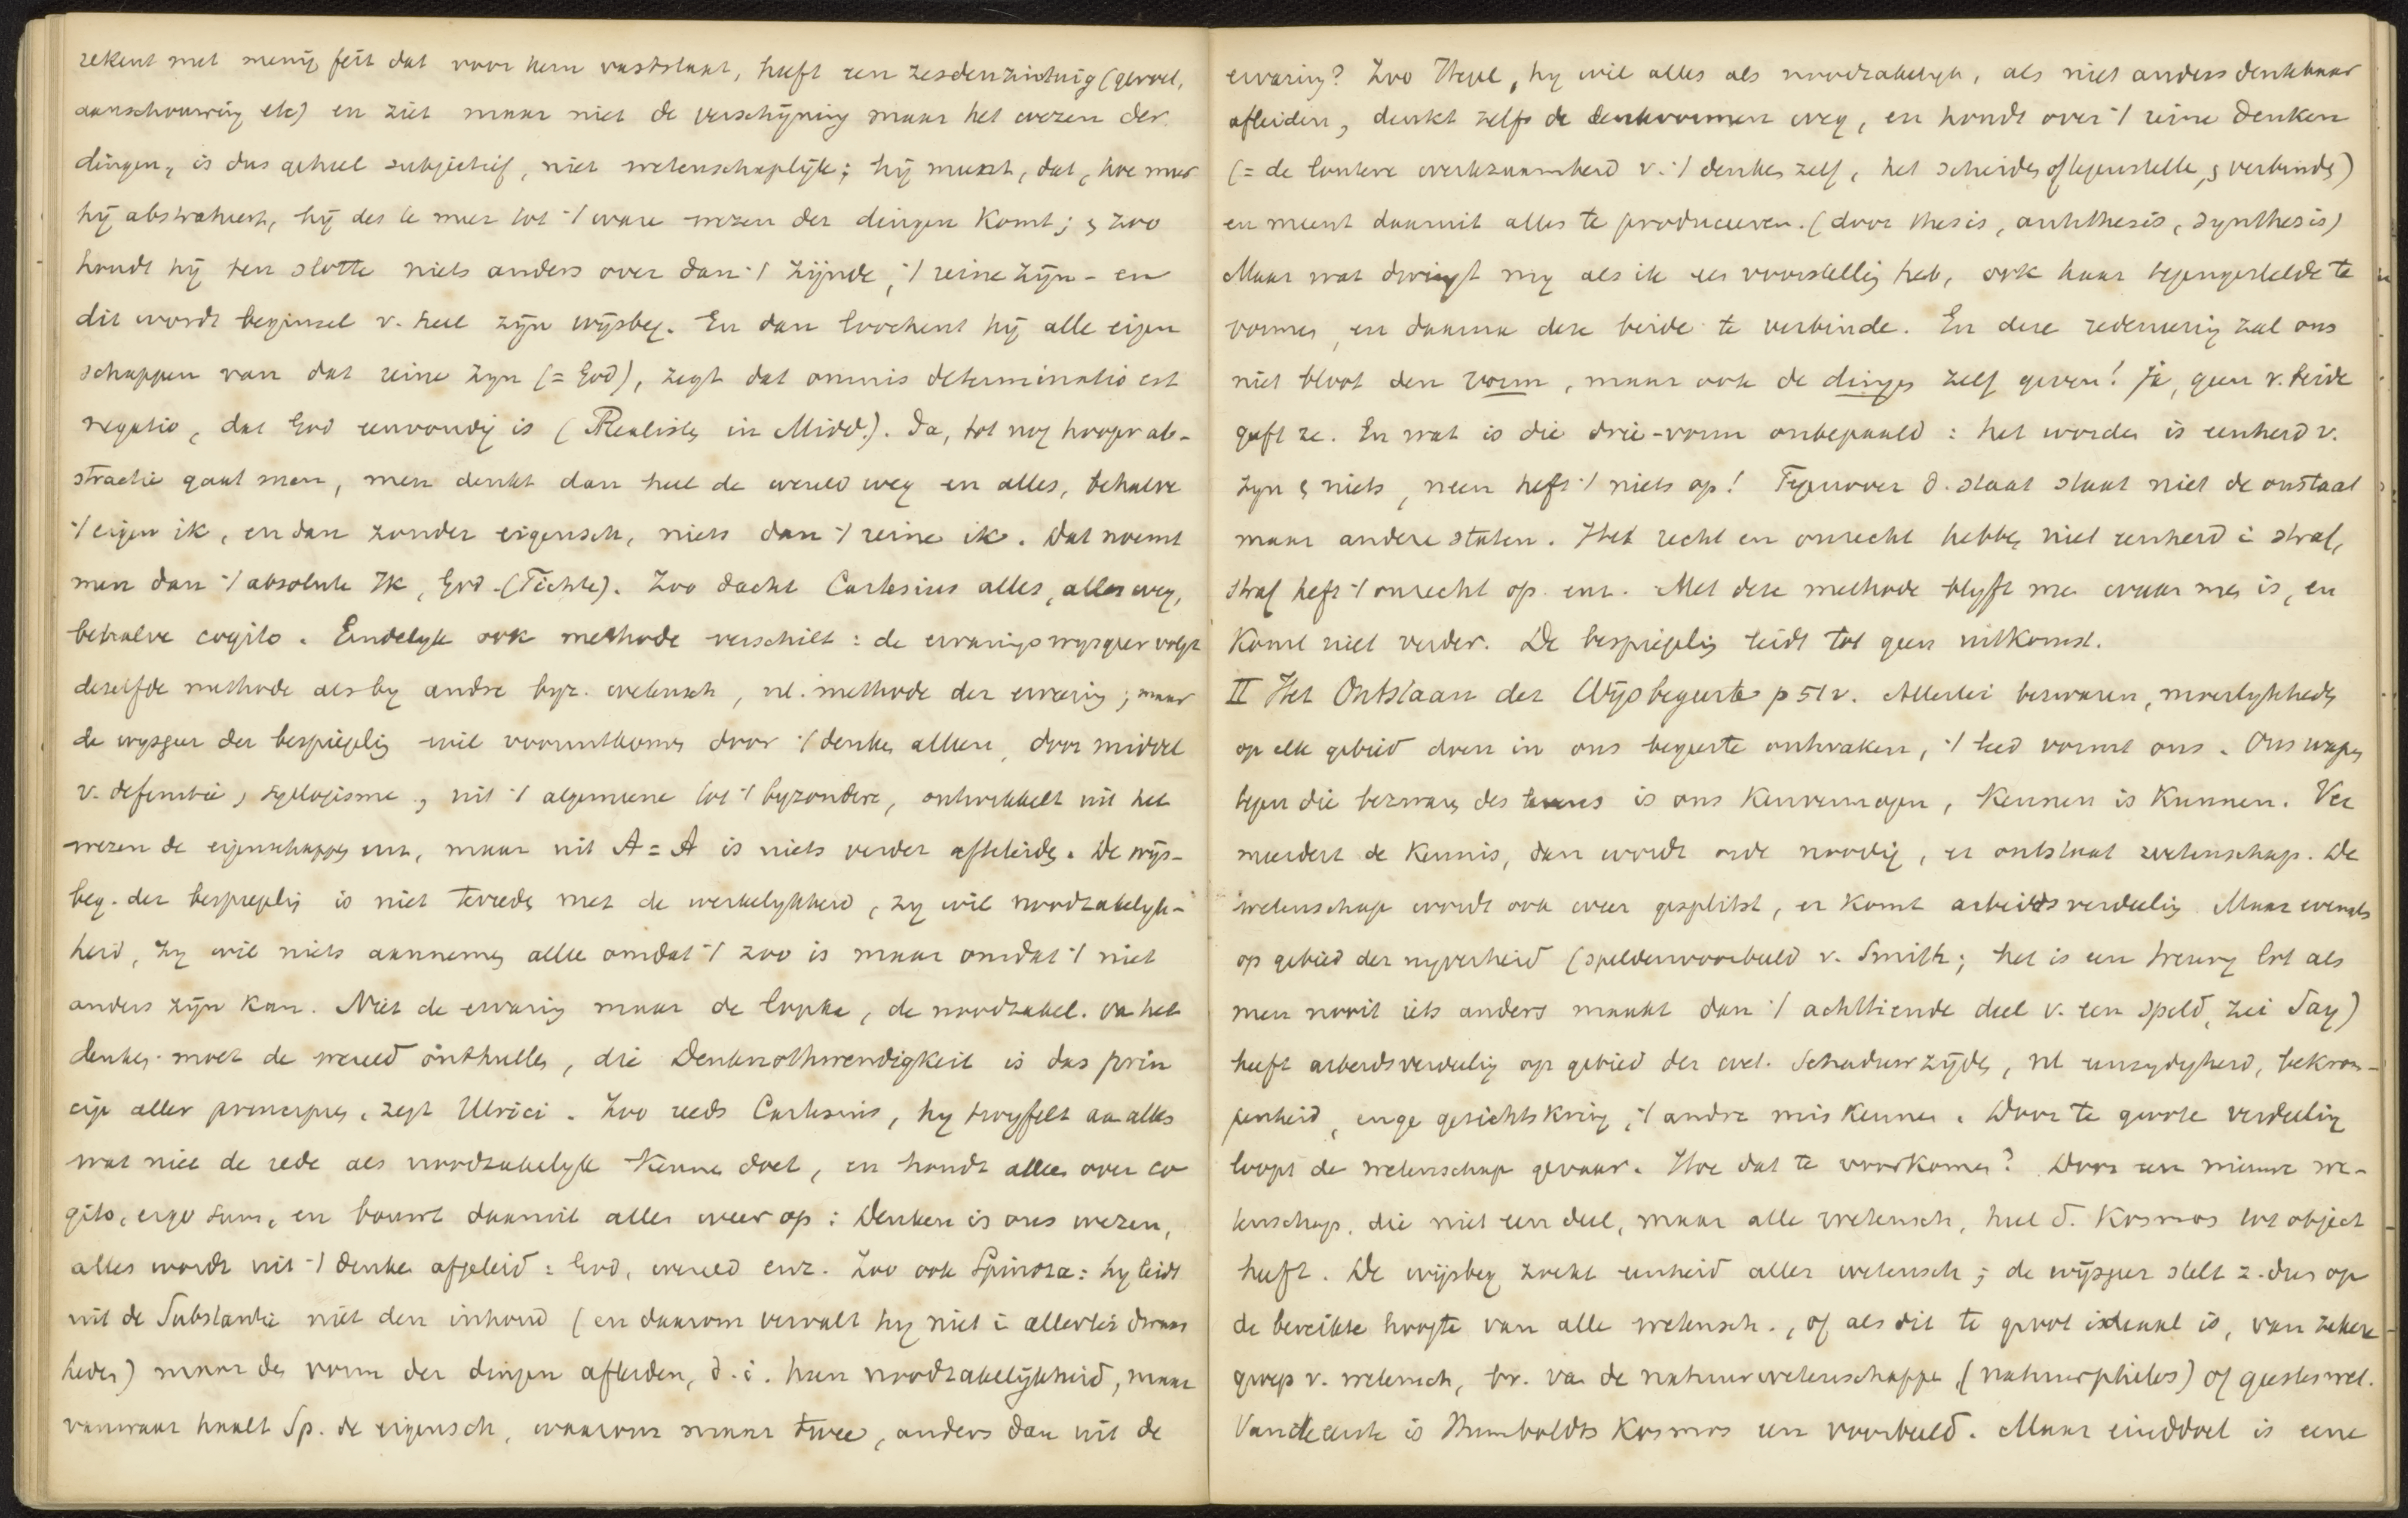 rekent met menig feit dat voor hem vaststaat, heeft een zesden zintuig (gevoel,
aanschouwing etc) en ziet maar niet de verschijning maar het wezen der
dingen, is dus geheel subjectief, niet wetenschaplijk; hij meent, dat, hoe meer
hij abstraheert, hij des te meer tot 't ware wezen der dingen komt; & zoo
houdt hij ten slotte niets anders over dan 't zijnde, 't reine zijn - en
dit wordt beginsel v. heel zijn wijsbeg. En dan loochent hij alle eigen
schappen van dat reine zyn (= God), zegt dat omnis determinatio est
negatio, dat God eenvoudig is (Realisten in Midd.). Ja, tot nog hooger ab-
stractie gaat men, men denkt dan heel de wereld weg en alles, behalve
't eigen ik, en dan zonder eigensch, niets dan 't reine ik. Dat noemt
men dan 't absolute Ik, God (Fichte). Zoo dacht Cartesius alles, alles weg,
behalve cogito. Eindelyk ook methode verschilt: de ervaringswysgeer volgt
dezelfde methode als by andre byz. wetensch, nl. methode der ervaring; maar
de wysgeer der bespiegelig wil vooruitkomen door 't denken alleen, door middel
v. definitie, syllogisme, uit 't algemeene tot 't byzondere, ontwikkelt uit het
wezen de eigenschappen enz, maar uit A = A is niets verder afteleiden. De wijs-
beg. der bespiegelig is niet tevreden met de werkelykheid, zy wil noodzakelyk-
heid, zy wil niets aannemen alleen omdat 't zoo is maar omdat 't niet
anders zijn kan. Niet de ervaring maar de logika, de noodzakel. van het
denken moet de wereld onthullen, die Denknothwendigkeit is das prin
cip aller principien, zegt Ulrici. Zoo reeds Cartesius, hy twyfelt aan alles
wat niet de rede als noodzakelyk kennen doet, en houdt alleen over co
gito, ergo sum, en bouwt daaruit alles weer op: Denken is ons wezen,
alles wordt uit 't denken afgeleid: God, wereld enz. Zoo ook Spinoza: hy leidt
uit de Substantie niet den inhoud (en daarom vervalt hy niet in allerlei dwaas
heden) maar den vorm der dingen afleiden, d.i. hun noodzakelijkheid, maar
vanwaar haalt Sp. de eigensch, waarom maar twee, anders dan uit de
ervaring? Zoo Hegel, hy wil alles als noodzakelyk, als niet anders denkbaar
afleiden, denkt zelfs de denkvormen weg, en houdt over 't reine Denken
(= de loutere werkzaamheid v. 't denken zelf, het scheiden of tegenstellen, & verbinden)
en meent daaruit alles te produceeren. (door thesis, antithesis, synthesis)
Maar wat dwingt my als ik een voorstellig heb, ook haar tegengestelde te
vormen, en daarna deze beide te verbinden. En deze redeneering zal ons
niet bloot den vorm, maar ook de dingen zelf geven! Ja, geen v. beide
geeft ze. En wat is die drie-vorm onbepaald: het worden is eenheid v.
zyn & niets, neen heft 't niets op! Tegenover d. staat staat niet de onstaat
maar andere staten. Het recht en onrecht hebben niet eenheid in straf,
straf heft 't onrecht op enz. Met deze methode blyft men waar men is, en
komt niet verder. De bespiegelig leidt tot geen uitkomst.
II Het Ontstaan der Wijsbegeerte p 51v. Allerlei bezwaren, moeilykheden
op elk gebied doen in ons begeerte ontwaken, 't leed vormt ons. Ons wapen
tegen die bezwaren des levens is ons Kenvermogen, Kennen is Kunnen. Ver
meerdert de Kennis, dan wordt orde noodig, er ontstaat wetenschap. De
wetenschap wordt ook weer gesplitst, er komt arbeidsverdeelig. Maar evenals
op gebied der nyverheid (speldenvoorbeeld v. Smith; het is een treurig lot als
men nooit iets anders maakt dan 't achttiende deel v. een speld, zei Say)
heeft arbeidsverdeelig op gebied der wet. Schaduwzijden, nl eenzydigheid, bekrom-
penheid, enge gezichtskring, 't andre miskennen. Door te groote verdeelig
loopt de wetenschap gevaar. Hoe dat te voorkomen? Door een nieuwe we-
tenschap, die niet een deel, maar alle wetensch, heel d. Kosmos tot object
heeft. De wijsbeg zoekt eenheid aller wetensch; de wijsgeer stelt z. dus op
de bereikte hoogte van alle wetensch., of als dit te groot ideaal is, van zekere
groep v. wetensch, bv. van de natuurwetenschappen (natuurphilos) of geesteswet.
Van de eerste is Humboldts Kosmos een voorbeeld. Maar einddoel is eene